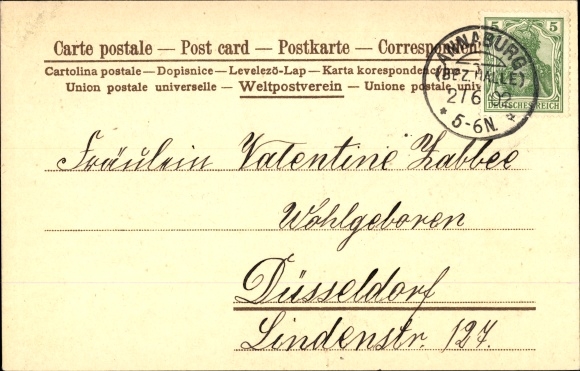 Carte postale — Post card — Postkarte — Correspon
Cartolina postale — Dopisnice — Levelező-Lap — Karta korespondenc
Union postale universelle — Weltpostverein — Unione postale
5 5
DEUTSCHES REICH
ANNABURG
(BEZ. HALLE)
5-6N.
Fräulein Valentine Labbee
Wohlgeboren
Düsseldorf
Lindenstr. 127.